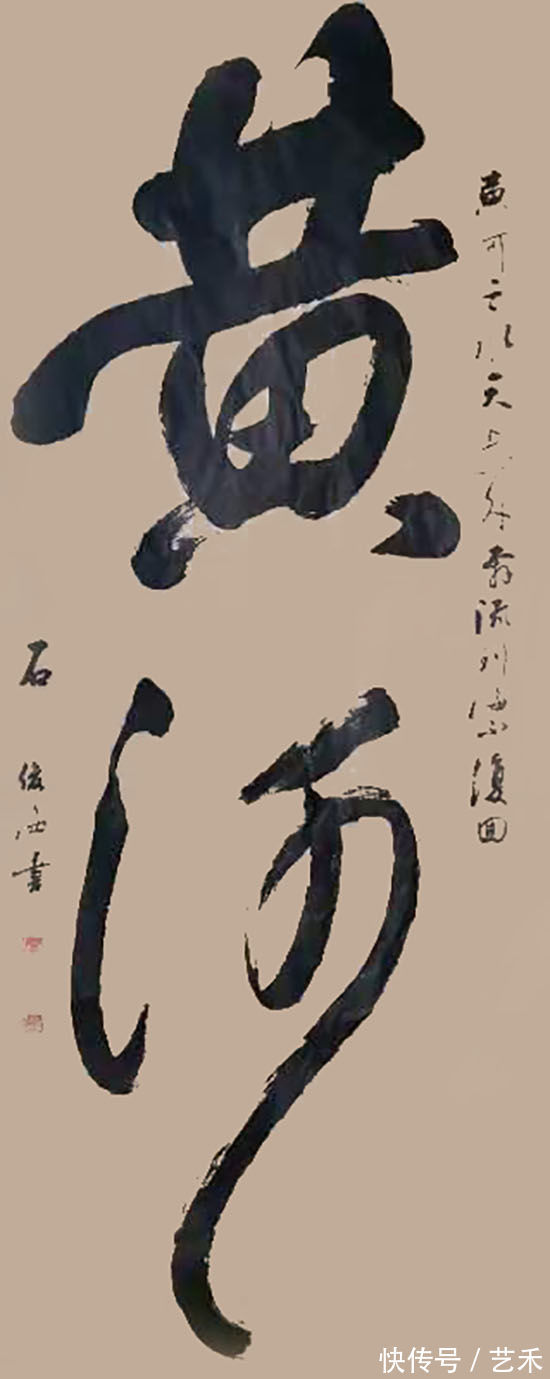 黄河之水天上来奔流到海不復回
黄河
石 書
快传号 / 艺禾